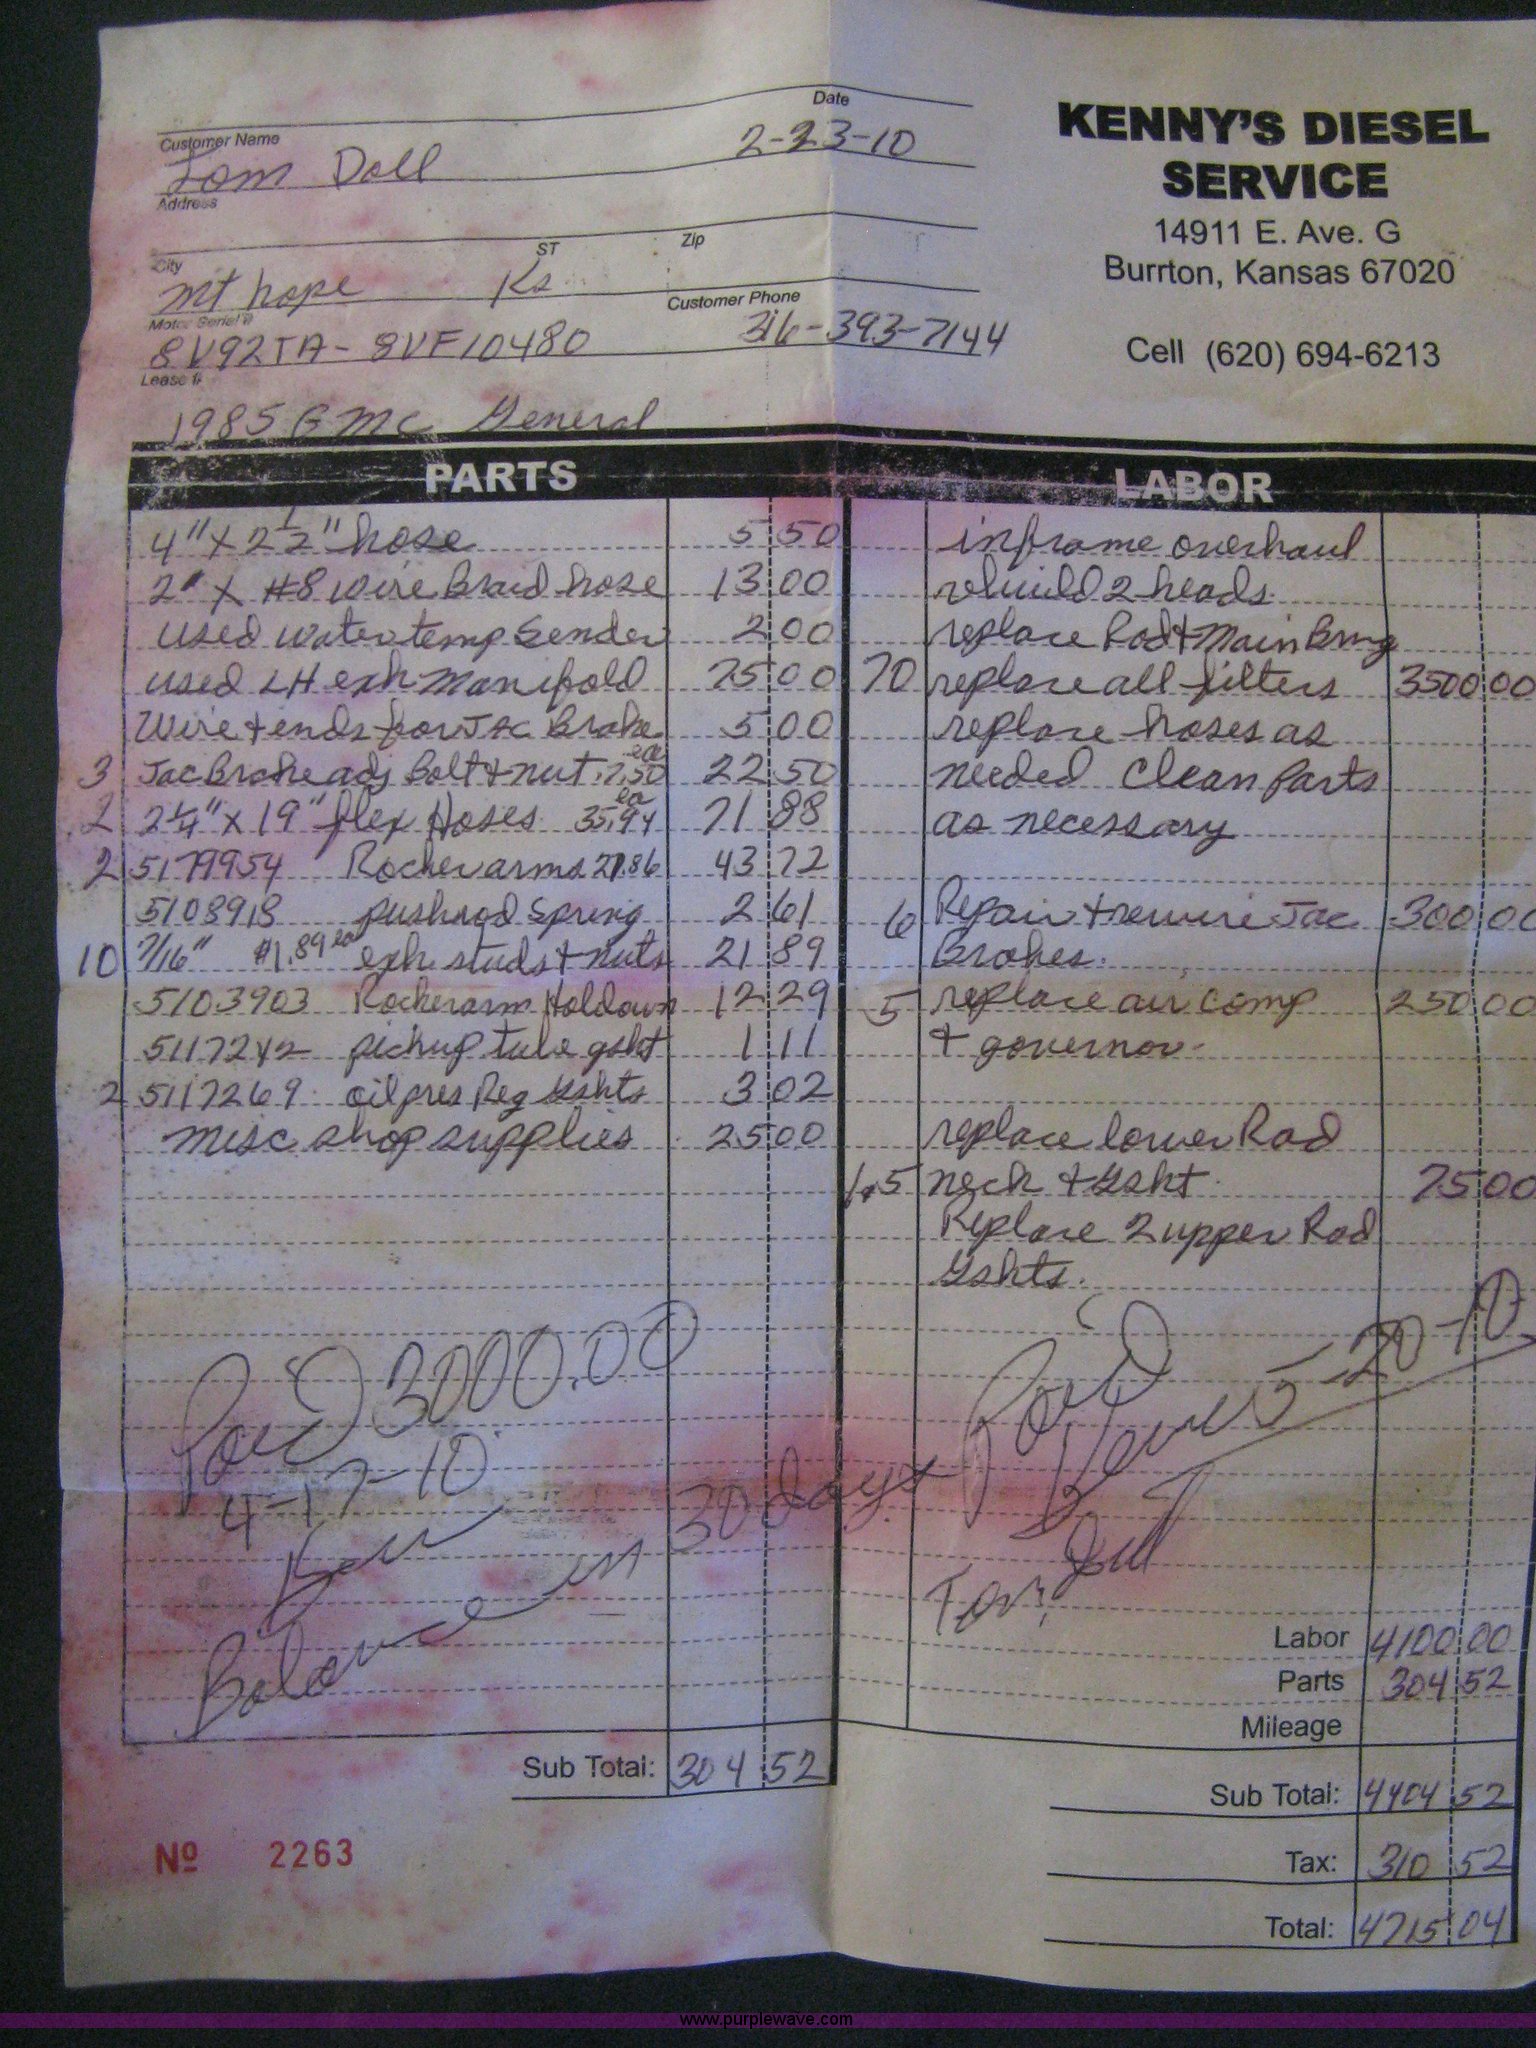 Date
Customer Name
Tom Doll 2-23-10
Address
City ST Zip
Mt hope Ks
Motor Serial # Customer Phone
8V92TA - 8VF10480 316-393-7144
Lease #
1985 GMC General
KENNY'S DIESEL
SERVICE
14911 E. Ave. G
Burrton, Kansas 67020
Cell (620) 694-6213
PARTS
4" x 2 1/2" hose 5 50
2" x #8 wire Braid hose 13 00
used water temp Sender 2 00
used LH exh Manifold 75 00
Wire + ends for Jac Brake 5 00
3 Jac Brake adj Bolt + nut 7.50 ea 22 50
2 2 1/4" x 19" flex Hoses 35.94 ea 71 88
2 5179954 Rocker arms 21.86 43 72
5108918 pushrod Spring 2 61
10 7/16" $1.89 ea exh studs + nuts 21 89
5103903 Rockerarm Holdown 12 29
5117242 pickup tube gsht 1 11
2 5117269 oil pres Reg Gshts 3 02
misc shop supplies 25 00
Paid 3000.00
4-17-10
Ken
Balance in 30 days
Sub Total: 304 52
LABOR
inframe overhaul
rebuild 2 heads
replace Rod + Main Brng
70 replace all filters 3500 00
replace hoses as
needed Clean Parts
as necessary
6 Repair + rewire Jac 300 00
Brakes.
5 replace air comp 250 00
+ governor.
replace lower Rad
1.5 neck + Gsht 75 00
Replace 2 upper Rad
Gshts.
Paid 5-20-10
Tom
Labor 4100 00
Parts 304 52
Mileage
Sub Total: 4404 52
Tax: 310 52
Total: 4715 04
Nº 2263
www.purplewave.com